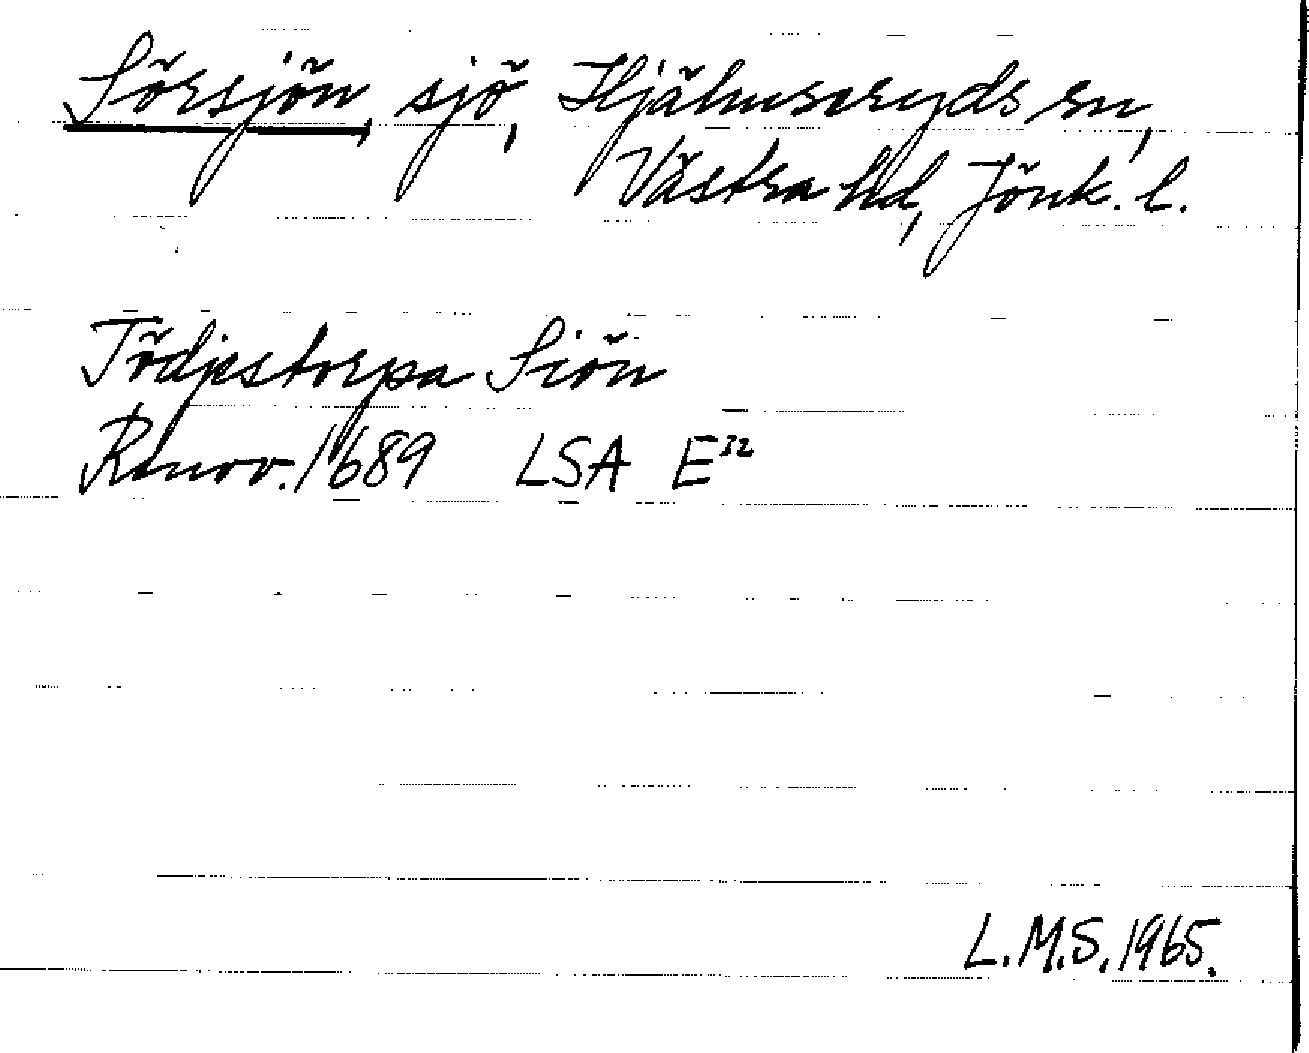 Sörsjön, sjö, Hjälmseryds sn,
Västra hd, Jönk. l.
Tödjestorpa Siön
Renov. 1689 LSA E³²
L.M.S. 1965.